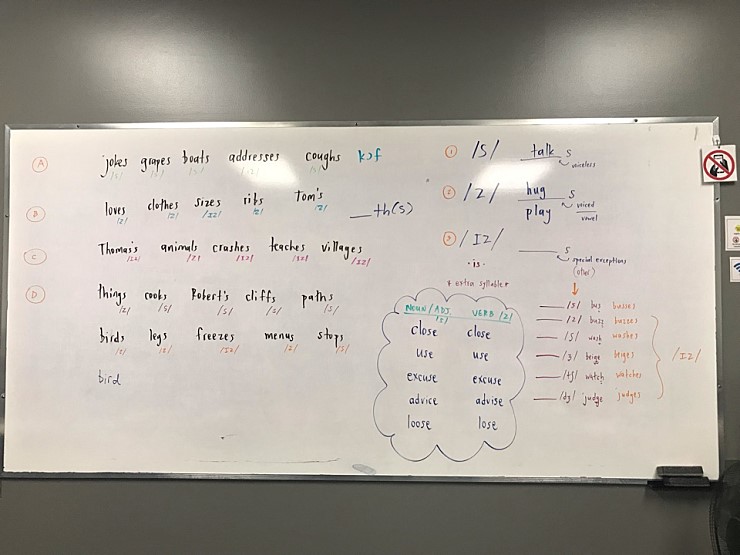 A jokes grapes boats addresses coughs kɔf
/s/ /s/ /s/ /s/
B loves clothes sizes ribs Tom's
/z/ /z/ /IZ/ /z/ /z/
___th(s)
C Thomas's animals crashes teaches villages
/IZ/ /z/ /IZ/ /IZ/ /IZ/
D things cooks Robert's cliffs paths
/z/ /s/ /s/ /s/ /s/
birds legs freezes menus stops
/z/ /z/ /IZ/ /z/ /s/
bird
1 /S/ talk s
voiceless
2 /Z/ hug s
play voiced
vowel
3 /IZ/ ____ s
·is· special exceptions
(other)
* extra syllable *
NOUN/ADJ. VERB /z/
/s/
close close
use use
excuse excuse
advice advise
loose lose
/s/ bus busses
/z/ buzz buzzes
/ʃ/ wash washes
/ʒ/ beige beiges
/tʃ/ watch watches
/dʒ/ judge judges
/IZ/